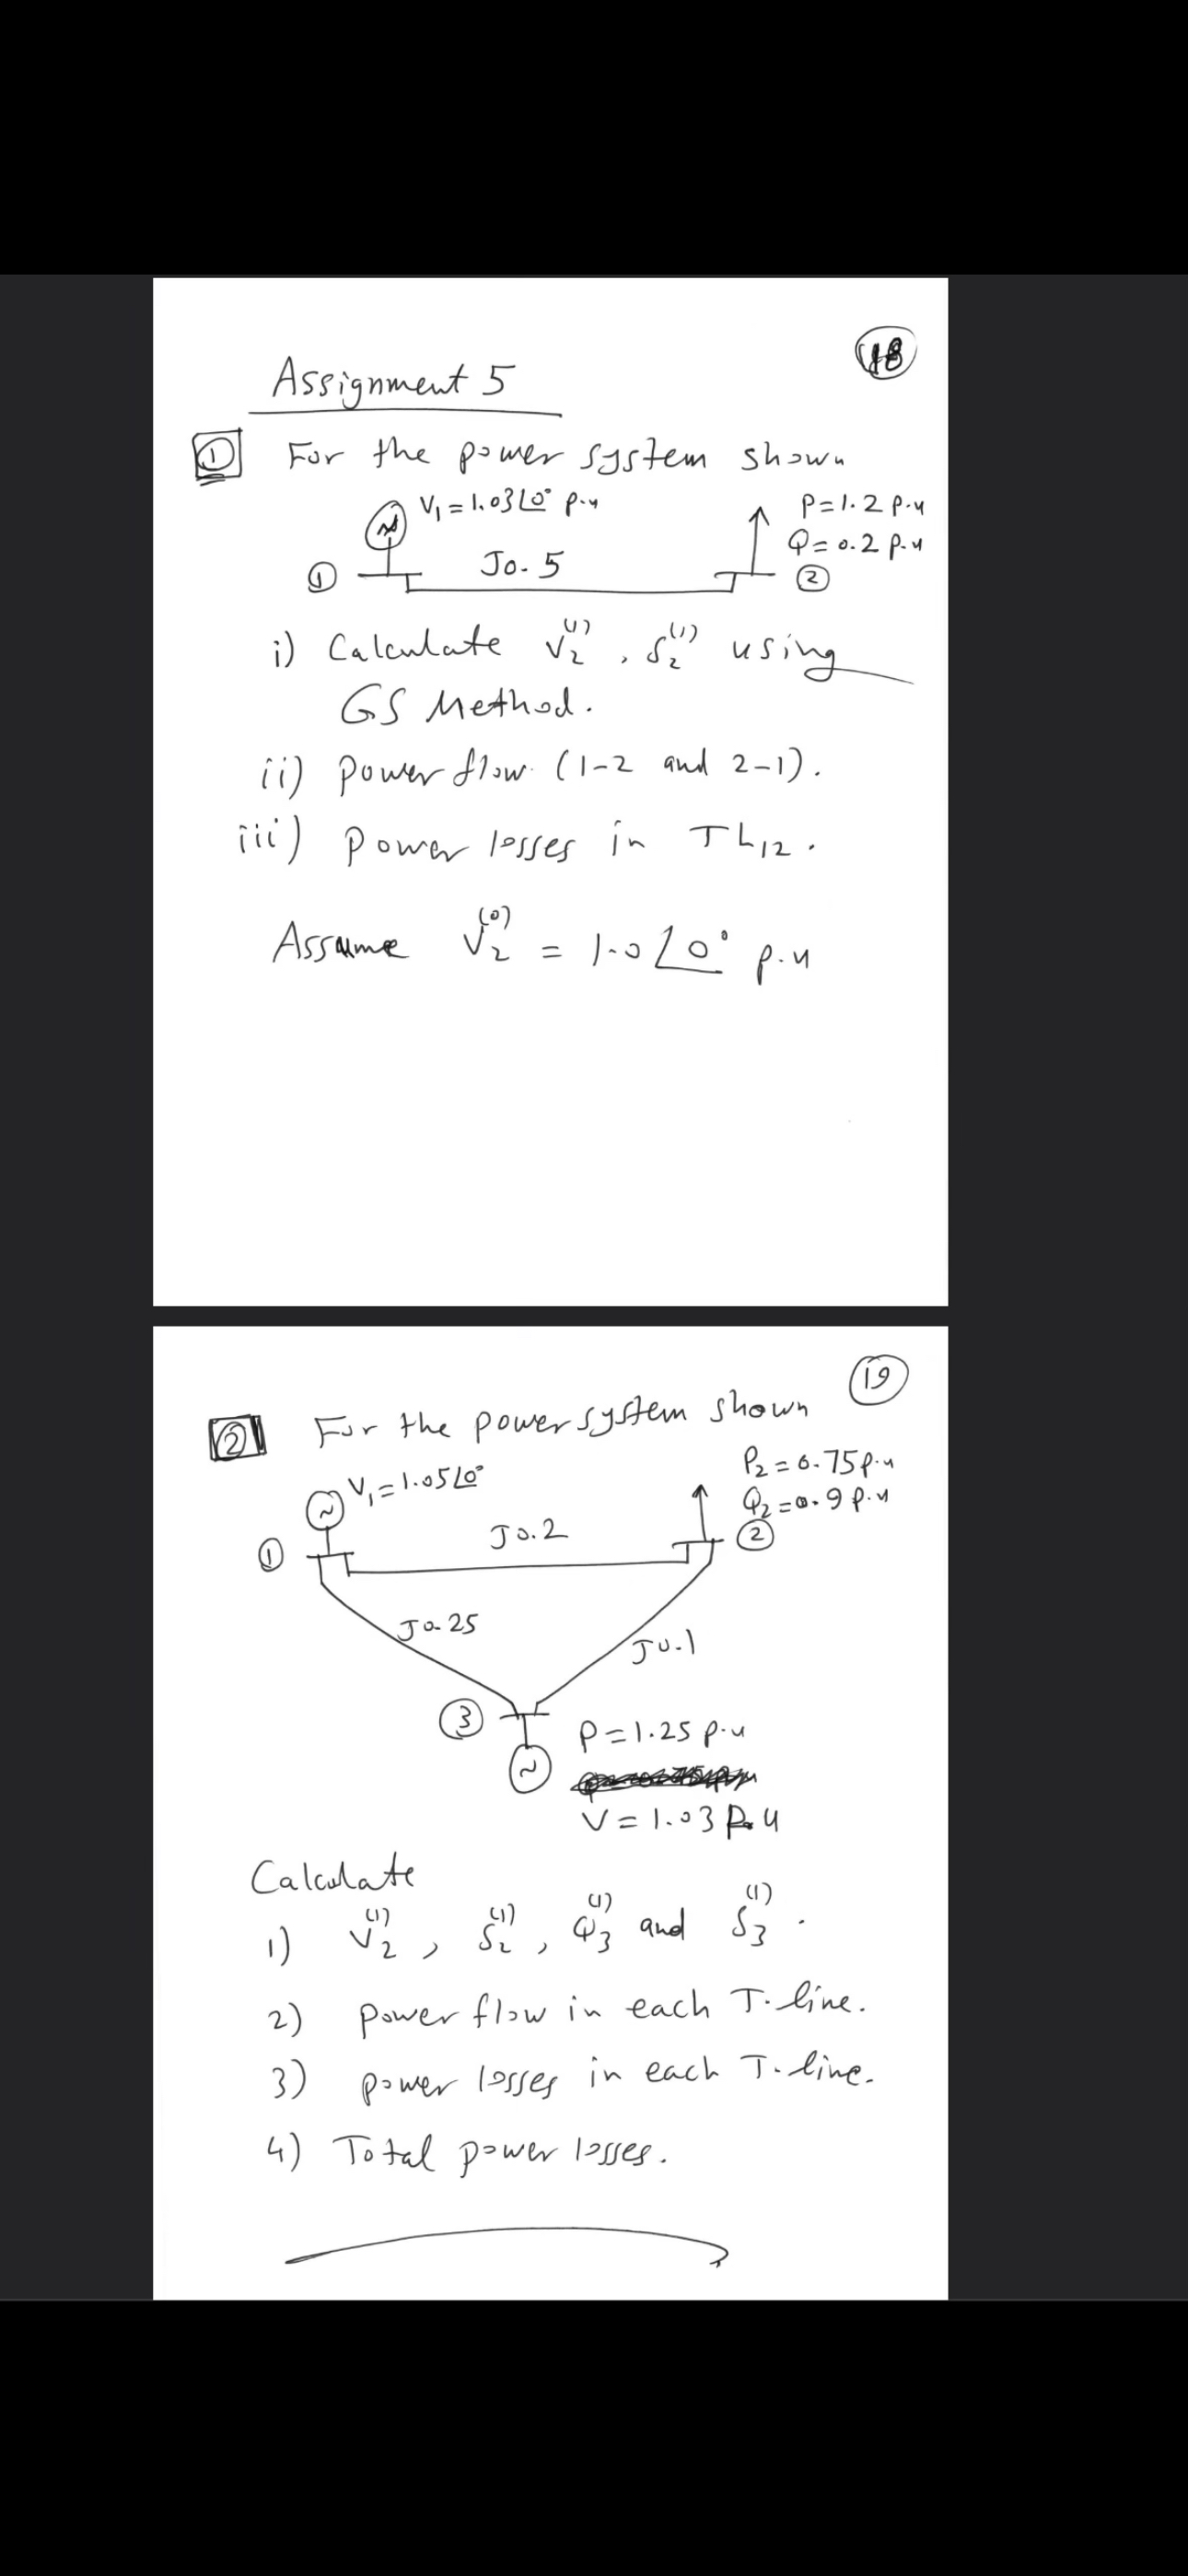 18
Assignment 5
1 For the power system shown
V₁ = 1.03∠0° p.u
P = 1.2 p.u
Q = 0.2 p.u
J0.5
1
2
i) Calculate V₂⁽¹⁾, δ₂⁽¹⁾ using
GS Method.
ii) power flow (1-2 and 2-1).
iii) power losses in TL₁₂.
Assume V₂⁽⁰⁾ = 1.0∠0° p.u
19
2 For the power system shown
V₁ = 1.05∠0°
P₂ = 0.75 p.u
Q₂ = 0.9 p.u
J0.2
1
2
J0.25
J0.1
3
P = 1.25 p.u
V = 1.03 p.u
Calculate
1) V₂⁽¹⁾, δ₂⁽¹⁾, Q₃⁽¹⁾ and δ₃⁽¹⁾.
2) power flow in each T. line.
3) power losses in each T. line.
4) Total power losses.